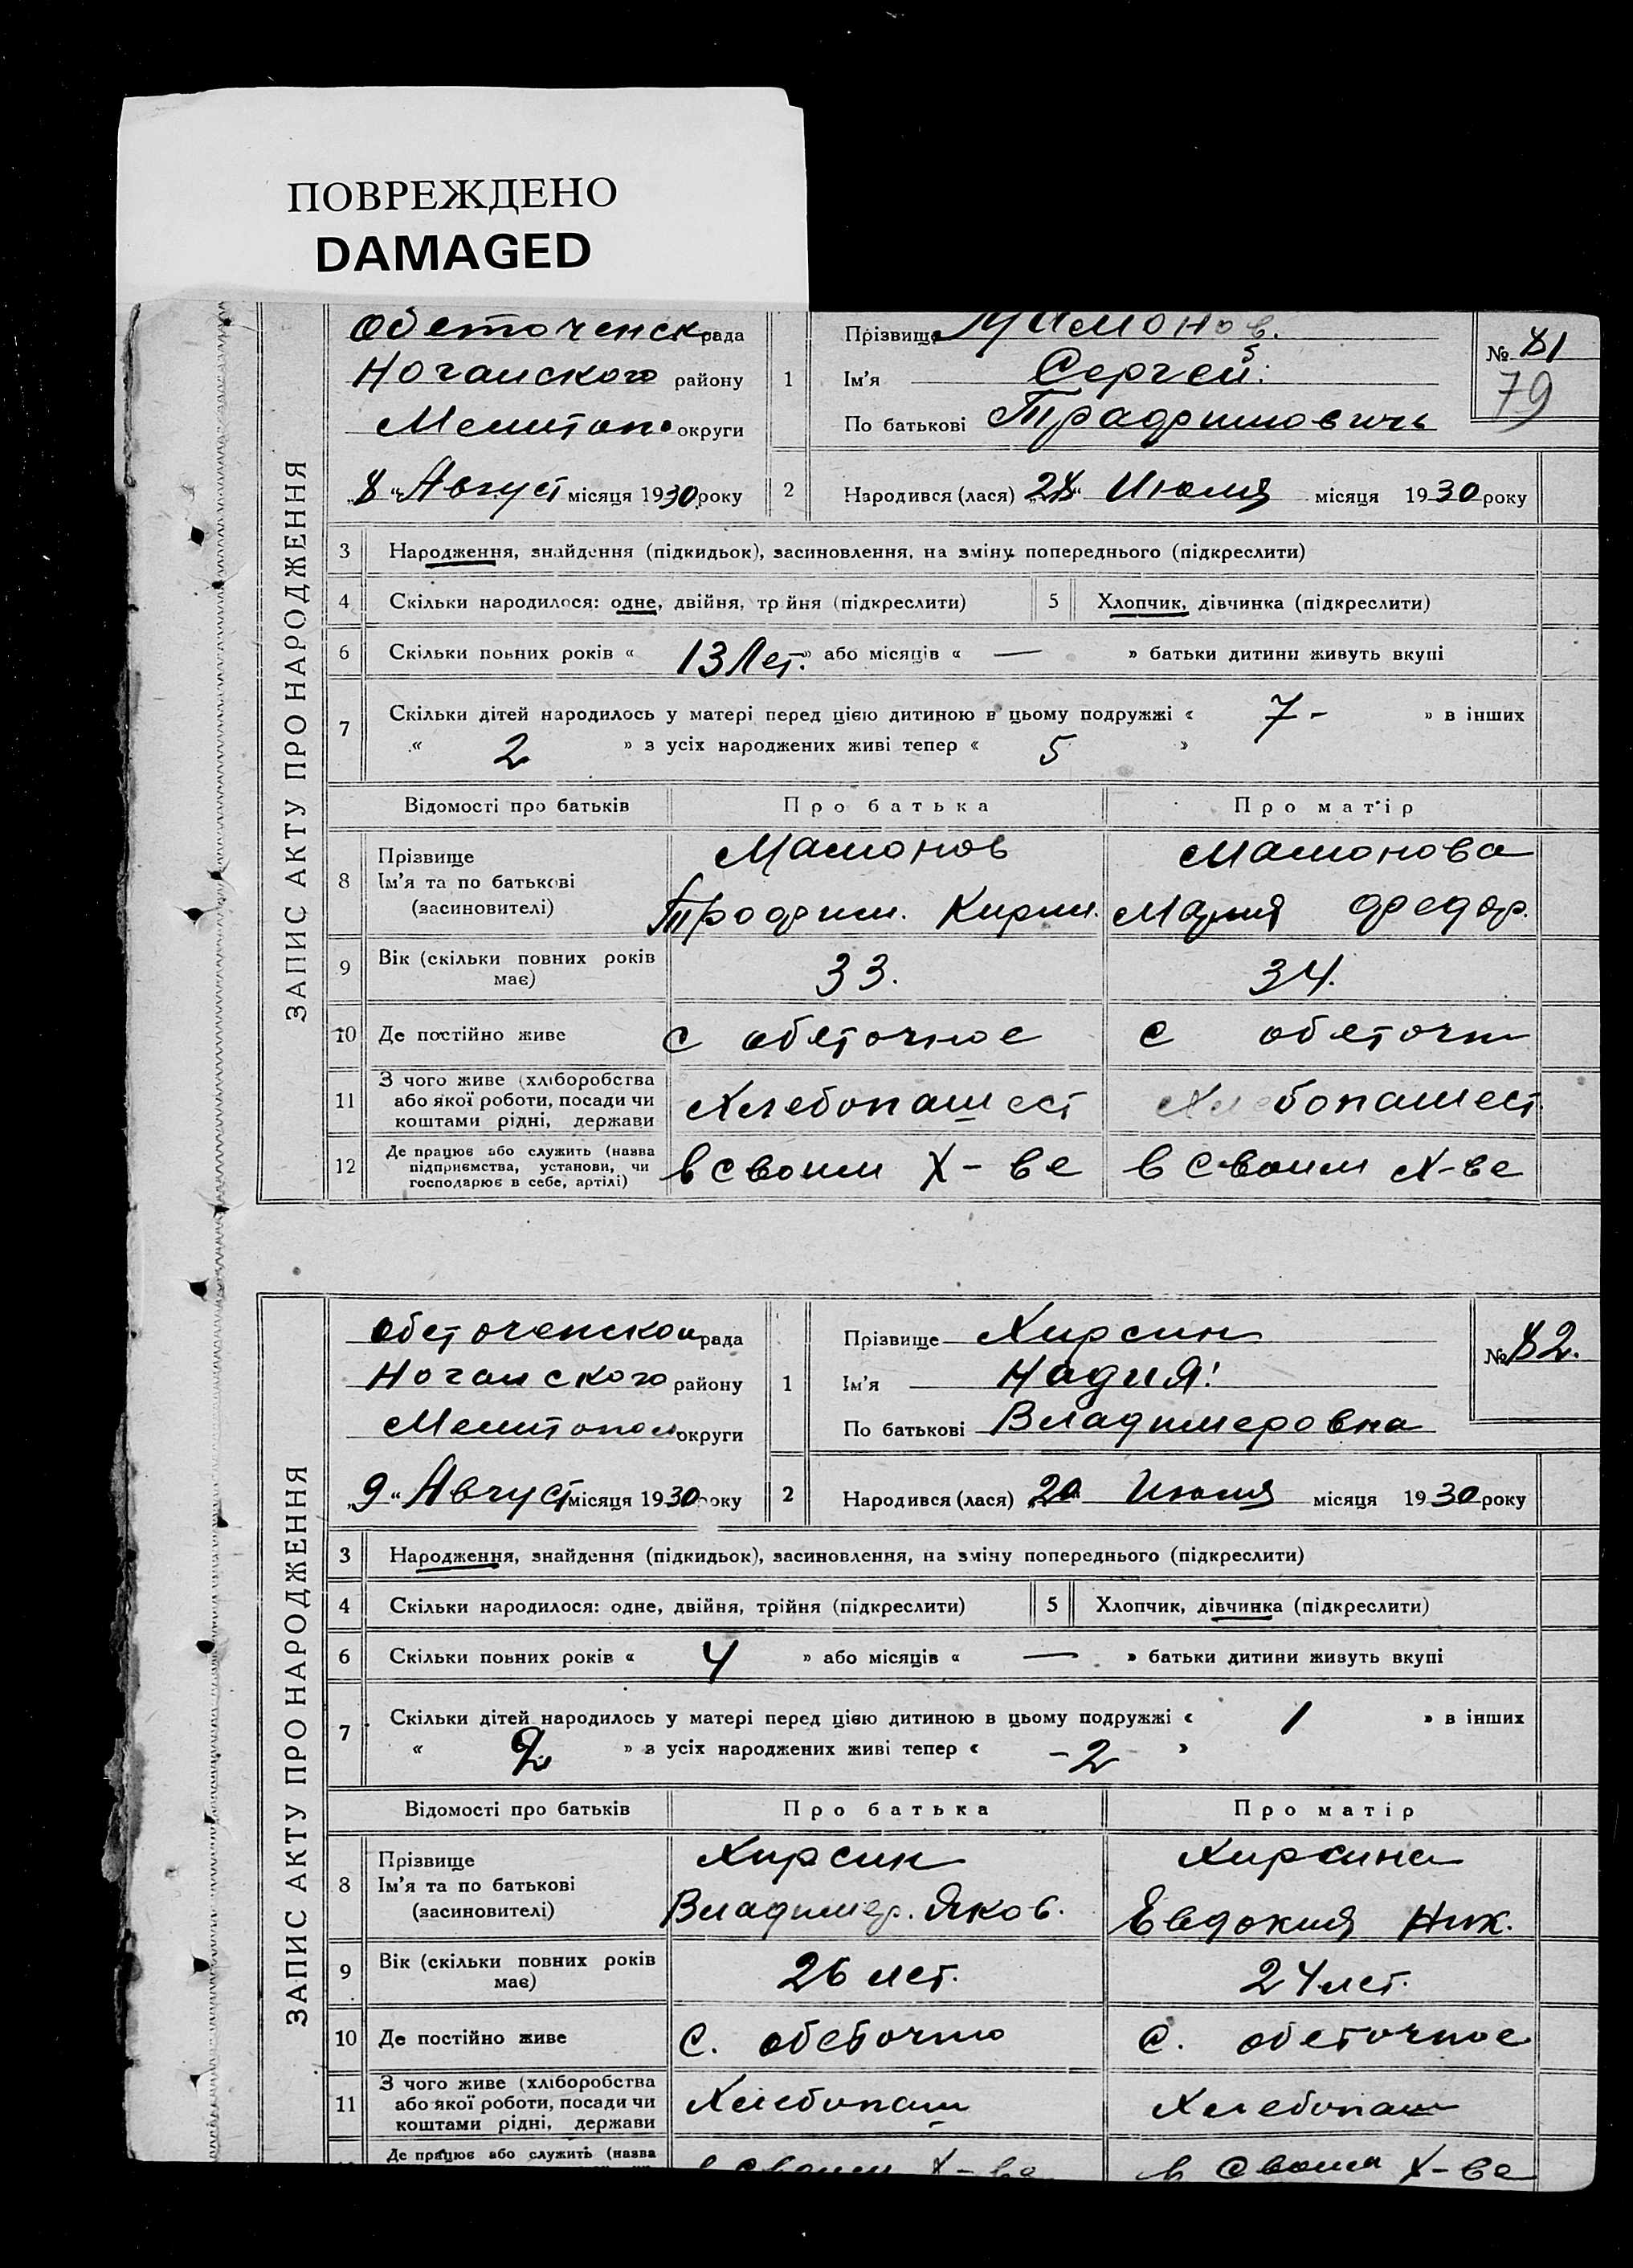 ПОВРЕЖДЕНО
DAMAGED
ЗАПИС АКТУ ПРО НАРОДЖЕННЯ
Обеточенск рада
Ногайского району
Мелитоп. округи
„8“ Август місяця 1930 року
1
Прізвище Мамонов.
Ім’я Сергей.
По батькові
№ 81
79
2 Народився (лася) „28“ Июля місяця 1930 року
3 Народження, знайдення (підкидьок), засиновлення, на зміну попереднього (підкреслити)
4 Скільки народилося: одне, двійня, тр йня (підкреслити) 5 Хлопчик, дівчинка (підкреслити)
6 Скільки повних років « 13 Лет. » або місяців « — » батьки дитини живуть вкупі
7 Скільки дітей народилось у матері перед цією дитиною в цьому подружжі « 7 - » в інших
« 2 » з усіх народжених живі тепер « 5 »
Відомості про батьків Про батька Про матір
8 Прізвище Мамонов Мамонова
Ім’я та по батькові
(засиновителі) Кирил. Мария Федор.
9 Вік (скільки повних років
має) 33. 34.
10 Де постійно живе с обяточное с обяточн
11 З чого живе (хліборобства
або якої роботи, посади чи Хлебопашест Хлебопашест
коштами рідні, держави
12 Де працює або служить (назва
підприємства, установи, чи в своим Х-ве в своим х-ве
господарює в себе, артілі)
ЗАПИС АКТУ ПРО НАРОДЖЕННЯ
Обеточенской рада
Ногайского району
Мелитопол округи
„9“ Август місяця 1930 року
1
Прізвище Хирсин
Ім’я Надия!
По батькові Владимеровна
№ 82.
2 Народився (лася) „20“ Июля місяця 1930 року
3 Народження, знайдення (підкидьок), засиновлення, на зміну попереднього (підкреслити)
4 Скільки народилося: одне, двійня, трійня (підкреслити) 5 Хлопчик, дівчинка (підкреслити)
6 Скільки повних років « 4 » або місяців « — » батьки дитини живуть вкупі
7 Скільки дітей народилось у матері перед цією дитиною в цьому подружжі « 1 » в інших
« 2 » з усіх народжених живі тепер « -2- »
Відомості про батьків Про батька Про матір
8 Прізвище Хирсин Хирсина
Ім’я та по батькові
(засиновителі) Владимер. Яков. Евдокия Ник.
9 Вік (скільки повних років
має) 26 лет. 24 лет.
10 Де постійно живе с. обеточно с. обеточное
11 З чого живе (хліборобства
або якої роботи, посади чи Хлебопаш Хлебопаш
коштами рідні, держави
Де працює або служить (назва
в своим х-ве в своим х-ве